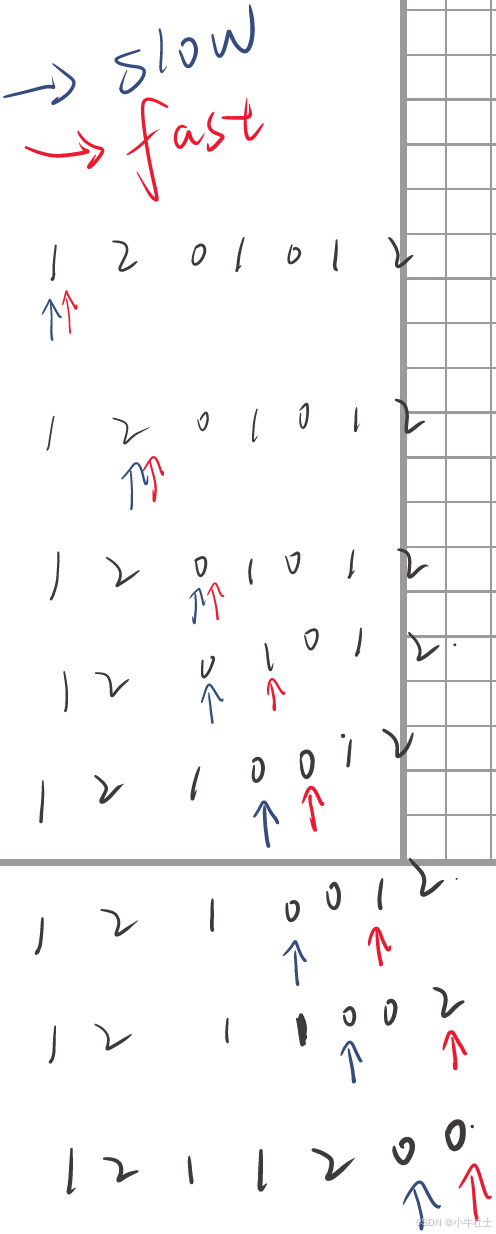 → slow
→ fast
1 2 0 1 0 1 2
1 2 0 1 0 1 2
1 2 0 1 0 1 2
1 2 0 1 0 1 2
1 2 1 0 0 1 2
1 2 1 0 0 1 2
1 2 1 1 0 0 2
1 2 1 1 2 0 0
CSDN @小牛壮士